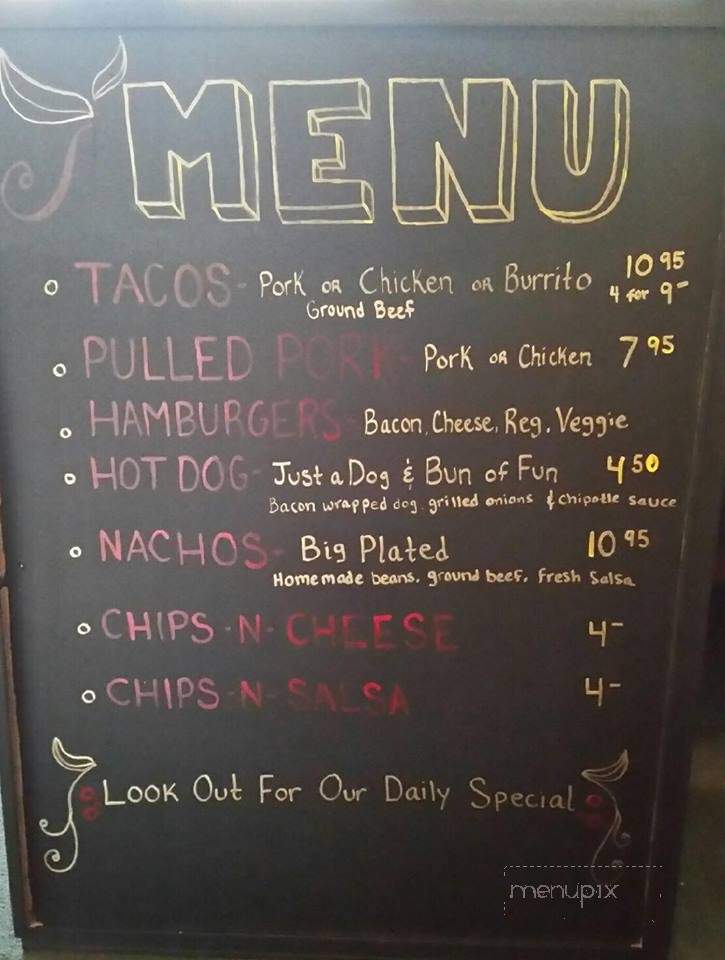 MENU
TACOS- Pork OR Chicken OR Burrito 10 95
Ground Beef 4 for 9-
PULLED PORK- Pork OR Chicken 7 95
HAMBURGERS- Bacon, Cheese, Reg, Veggie
HOT DOG- Just a Dog & Bun of Fun 4 50
Bacon wrapped dog, grilled onions & chipotle sauce
NACHOS- Big Plated 10 95
Homemade beans, ground beef, fresh salsa
CHIPS-N-CHEESE 4-
CHIPS-N-SALSA 4-
Look Out For Our Daily Special
menupix